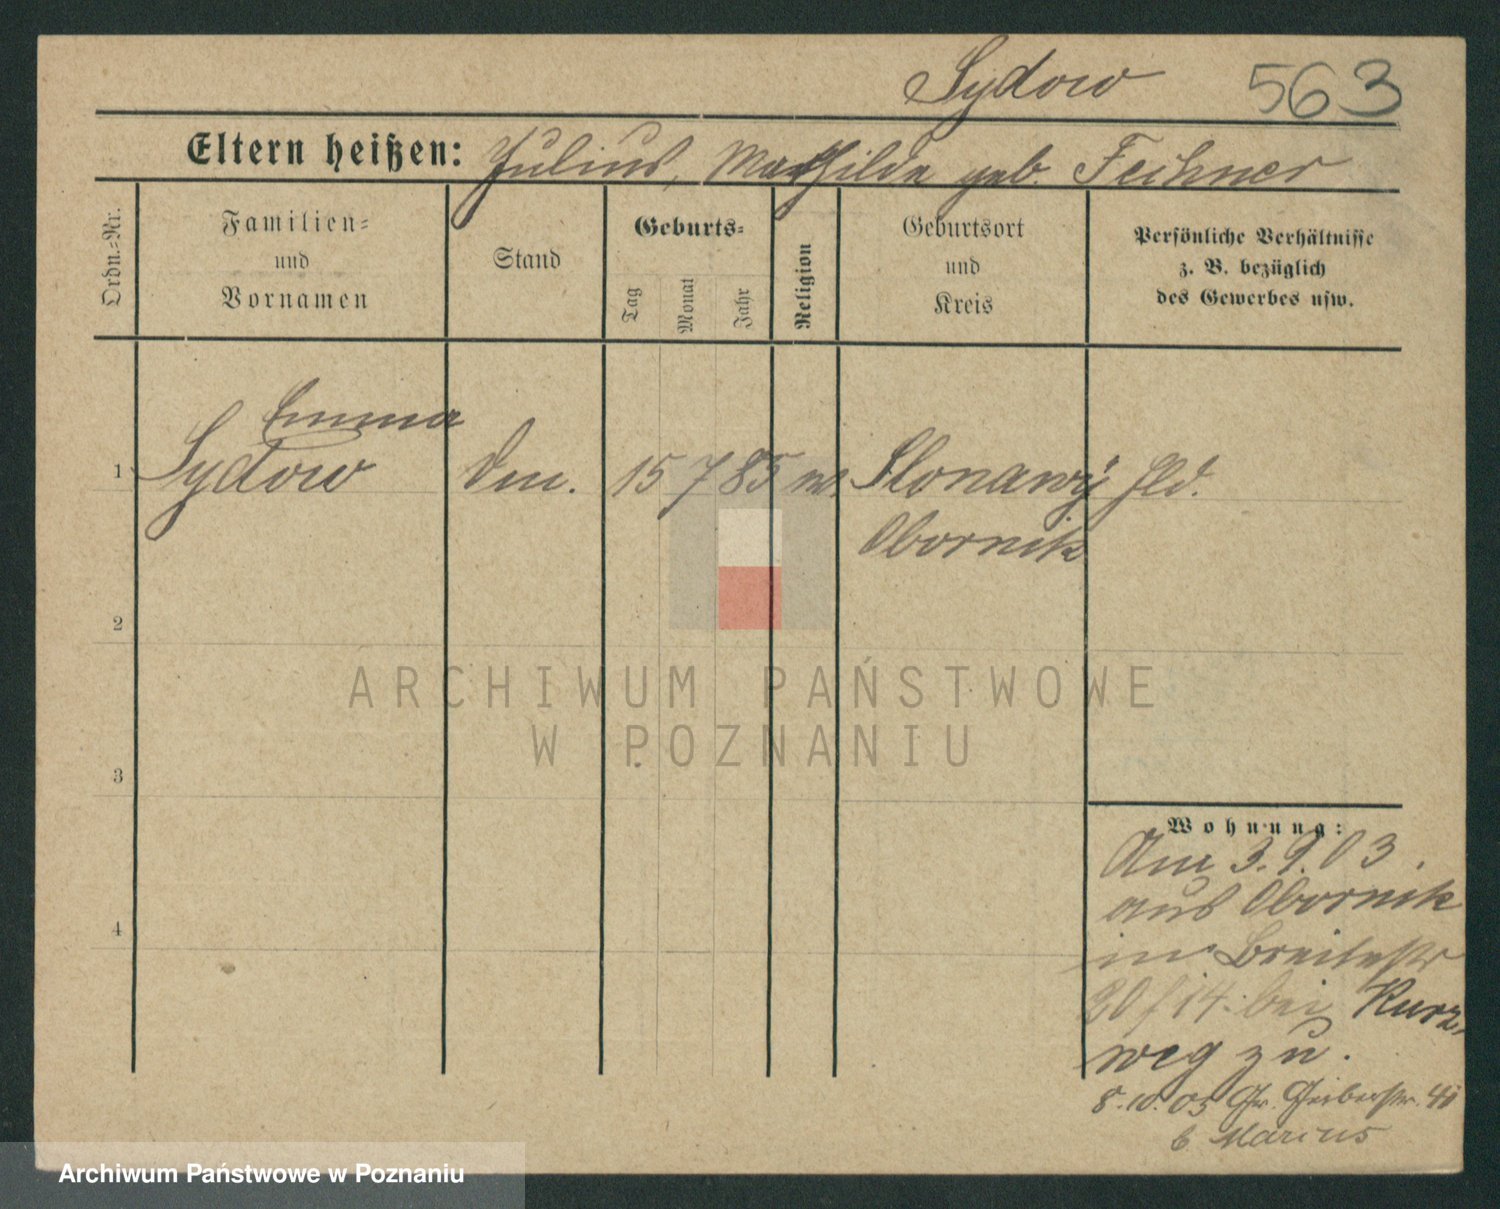 Sydow 563
Eltern heißen: Julius, Mathilde geb. Feihner
Ordn.-Nr.
Familien-
und
Vornamen
Stand
Geburts-
Tag
Monat
Jahr
Religion
Geburtsort
und
Kreis
Persönliche Verhältnisse
z. B. bezüglich
des Gewerbes usw.
Emma
1 Sydow 15 7 85 Slonawy
Obornik
2
3
4
ARCHIWUM PAŃSTWOWE
W POZNANIU
Wohnung:
Am 3.9.03.
aus Obornik
in Breitestr
20/14. bei Kurz-
weg zu.
8.10.05 Gr. 41
b Marius
Archiwum Państwowe w Poznaniu